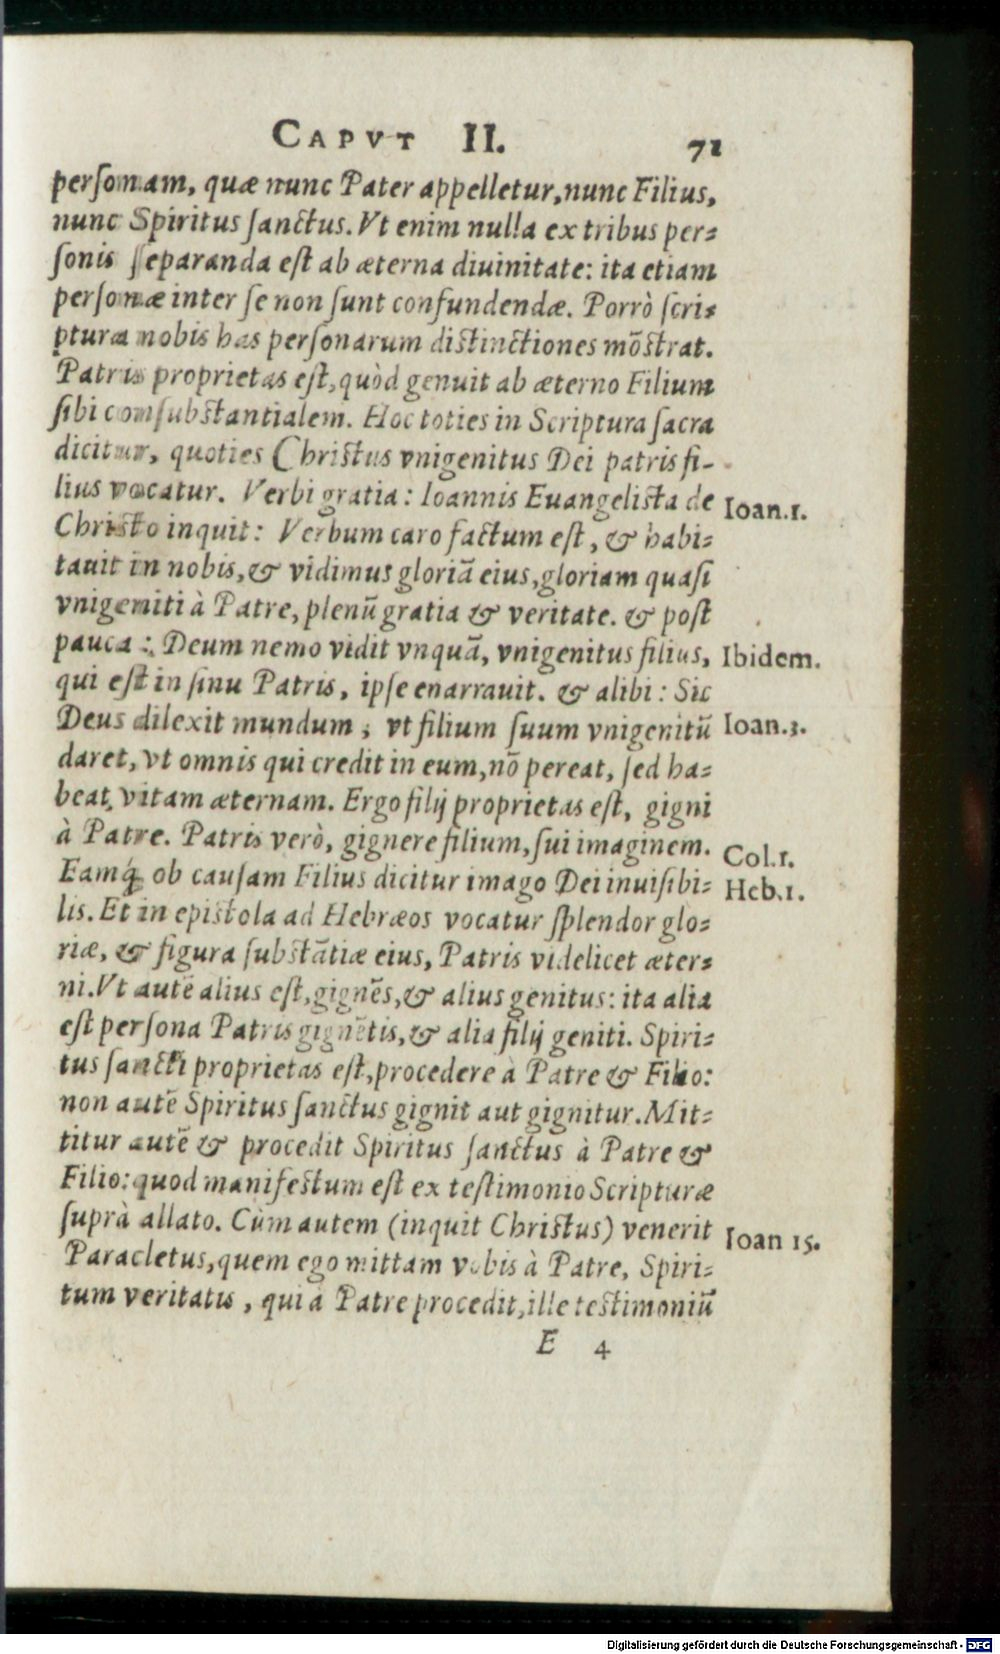 CAPVT II. 71
personam, quæ nunc Pater appelletur, nunc Filius,
nunc Spiritus sanctus. Vt enim nulla ex tribus per-
sonis separanda est ab æterna diuinitate: ita etiam
personæ inter se non sunt confundendæ. Porrò scri-
ptura nobis has personarum distinctiones mõstrat.
Patris proprietas est, quòd genuit ab æterno Filium
sibi consubstantialem. Hoc toties in Scriptura sacra
dicitur, quoties Christus vnigenitus Dei patris fi-
lius vocatur. Verbi gratia: Ioannis Euangelista de
Ioan.1.
Christo inquit: Verbum caro factum est, & habi-
tauit in nobis, & vidimus gloriã eius, gloriam quasi
vnigeniti à Patre, plenũ gratia & veritate. & post
pauca: Deum nemo vidit vnquã, vnigenitus filius,
Ibidem.
qui est in sinu Patris, ipse enarrauit. & alibi: Sic
Deus dilexit mundum, vt filium suum vnigenitũ
Ioan.3.
daret, vt omnis qui credit in eum, nõ pereat, sed ha-
beat vitam æternam. Ergo filij proprietas est, gigni
à Patre. Patris verò, gignere filium, sui imaginem.
Col.1.
Eamq́; ob causam Filius dicitur imago Dei inuisibi-
Heb.1.
lis. Et in epistola ad Hebræos vocatur splendor glo-
riæ, & figura substãtiæ eius, Patris videlicet æter-
ni. Vt autẽ alius est, gignẽs, & alius genitus: ita alia
est persona Patris gignẽtis, & alia filij geniti. Spiri-
tus sancti proprietas est, procedere à Patre & Filio:
non autẽ Spiritus sanctus gignit aut gignitur. Mit-
titur autẽ & procedit Spiritus sanctus à Patre &
Filio: quod manifestum est ex testimonio Scripturæ
suprà allato. Cùm autem (inquit Christus) venerit
Ioan 15.
Paracletus, quem ego mittam vobis à Patre, Spiri-
tum veritatis, qui à Patre procedit, ille testimoniũ
E 4
Digitalisierung gefördert durch die Deutsche Forschungsgemeinschaft - DFG